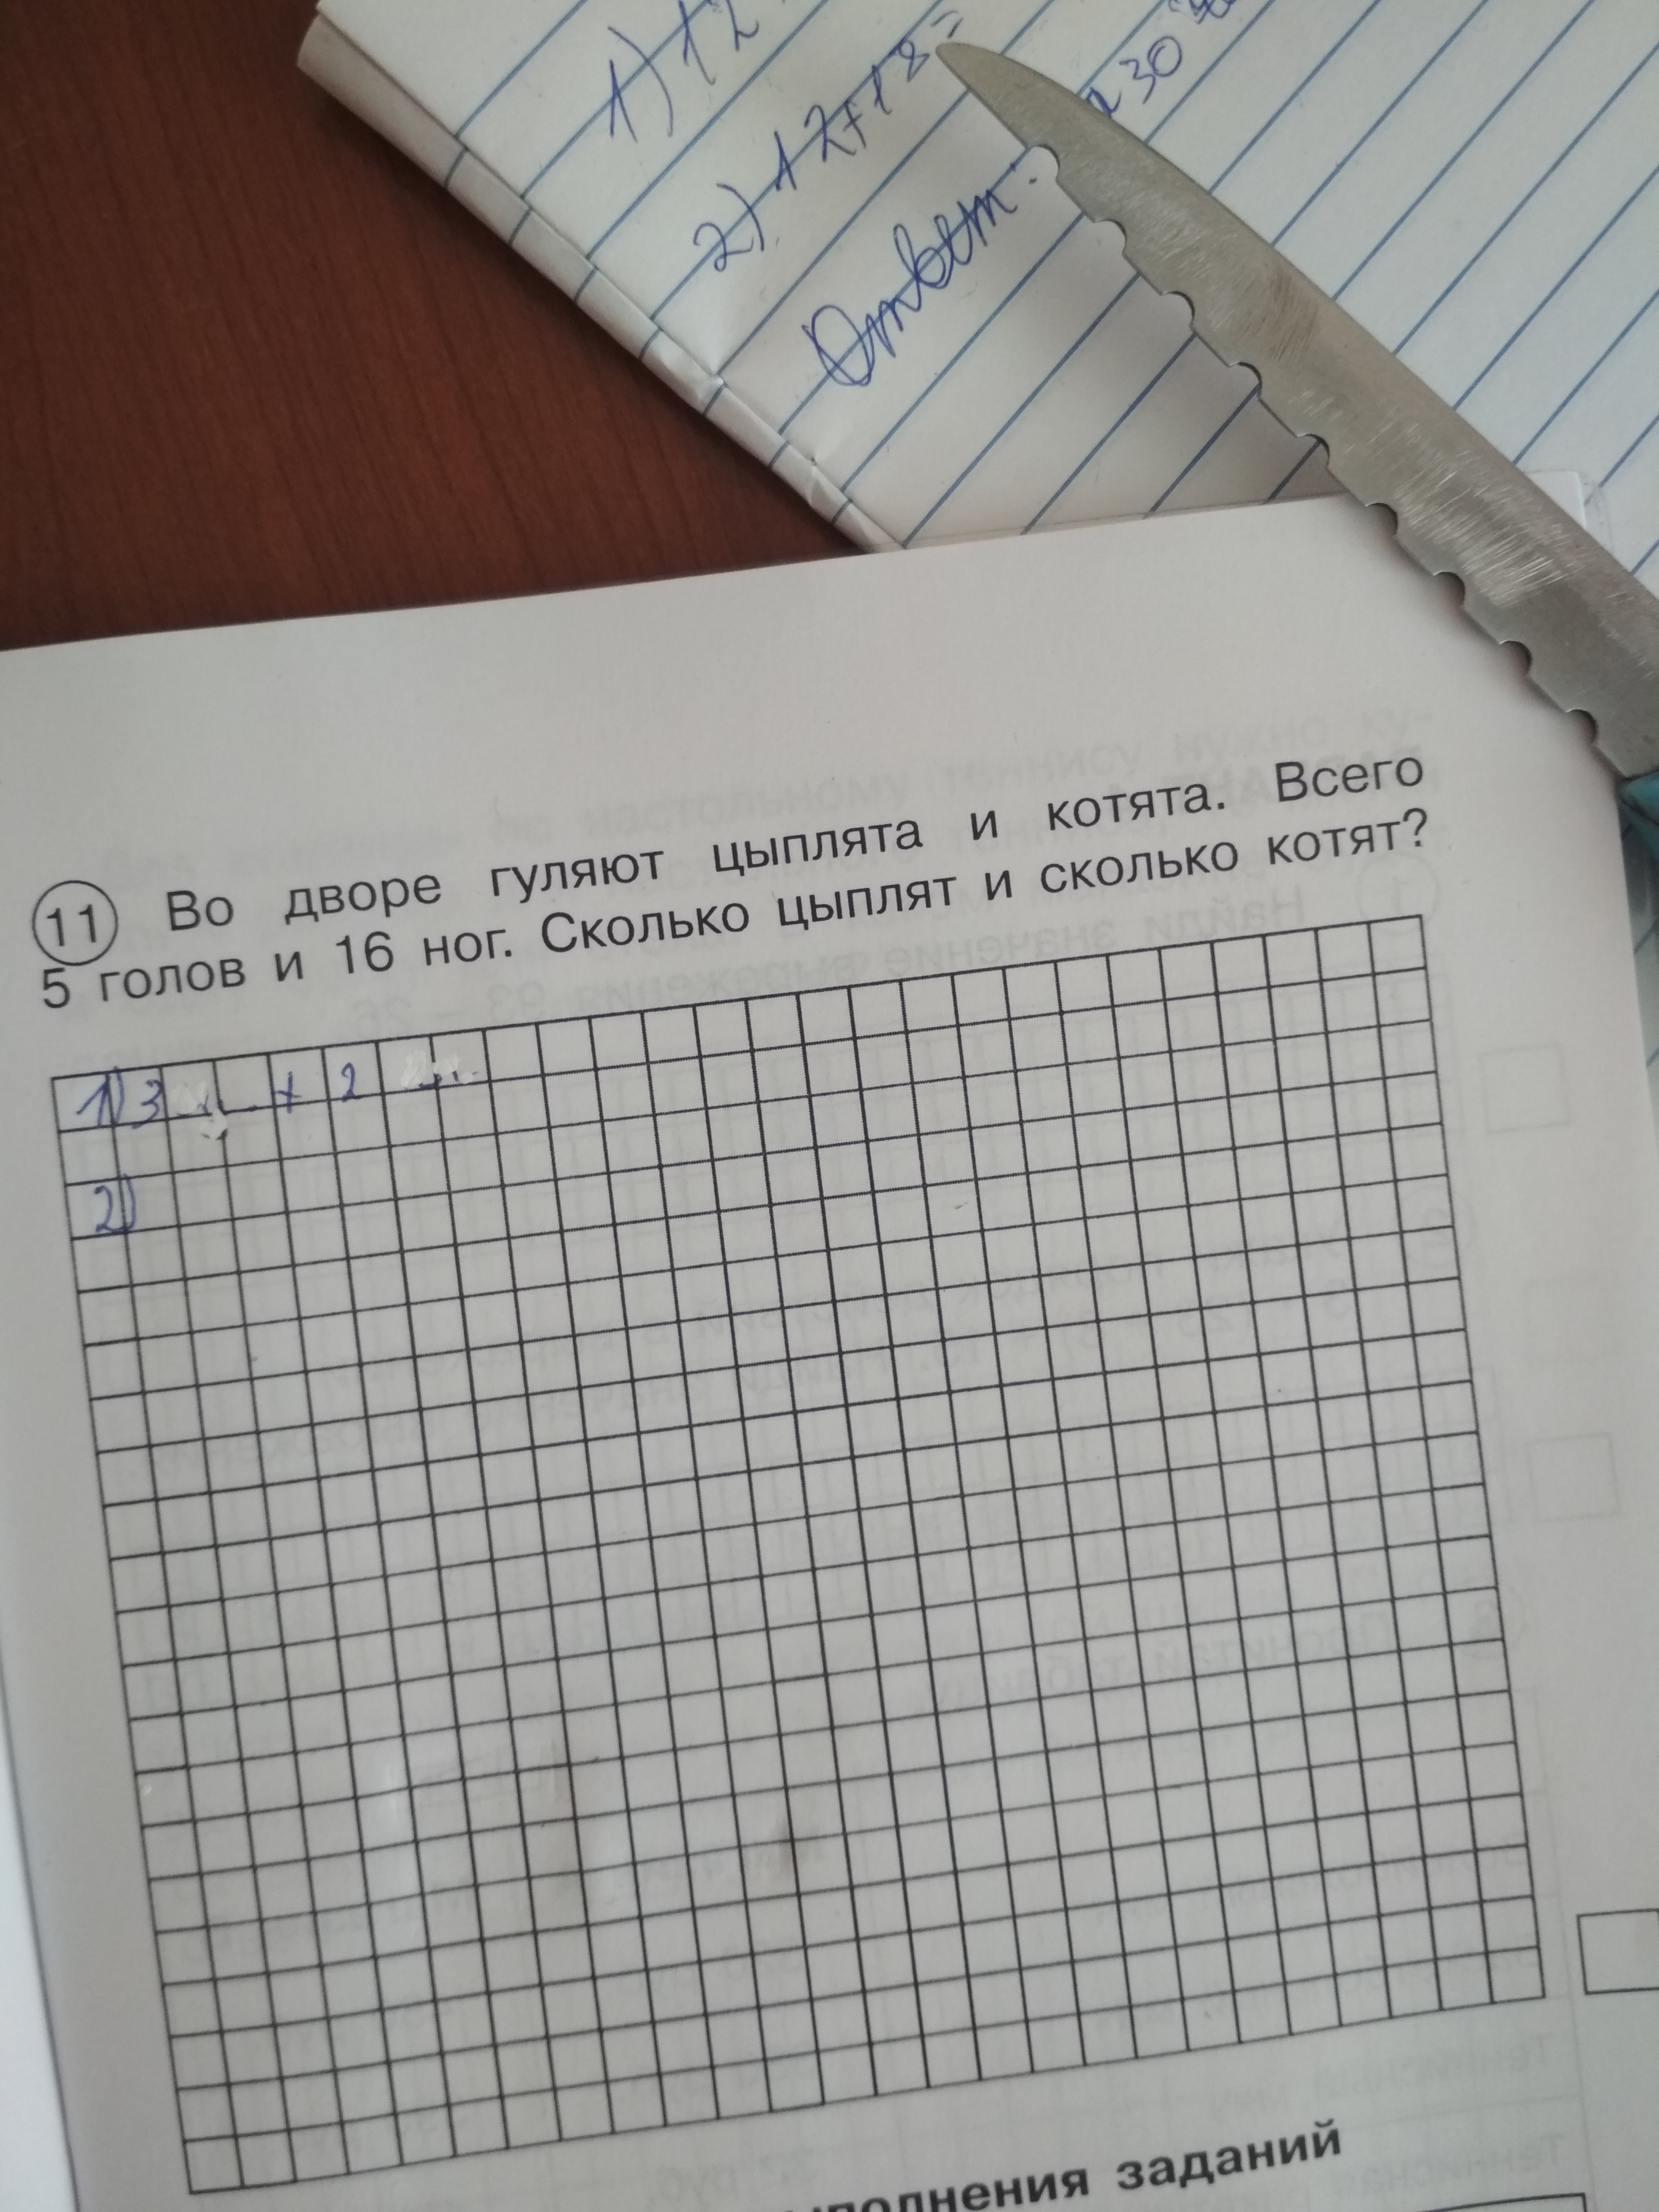 1) 12
2) 12+18=
Ответ: 30
11 Во дворе гуляют цыплята и котята. Всего
5 голов и 16 ног. Сколько цыплят и сколько котят?
1) 3 + 2
2)
полнения заданий